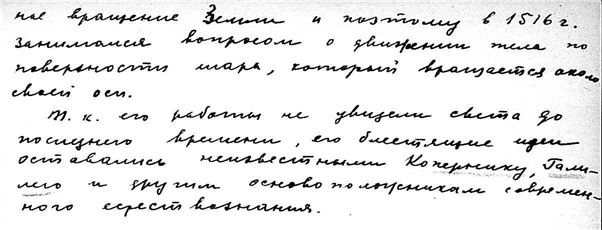 ное вращение Земли и поэтому в 1516 г.
занимался вопросом о движении тела по
поверхности шара, который вращается около
своей оси.
Т. к. его работы не увидели света до
последнего времени, его блестящие идеи
оставались неизвестными Копернику, Гали-
лею и другим основоположникам современ-
ного естествознания.